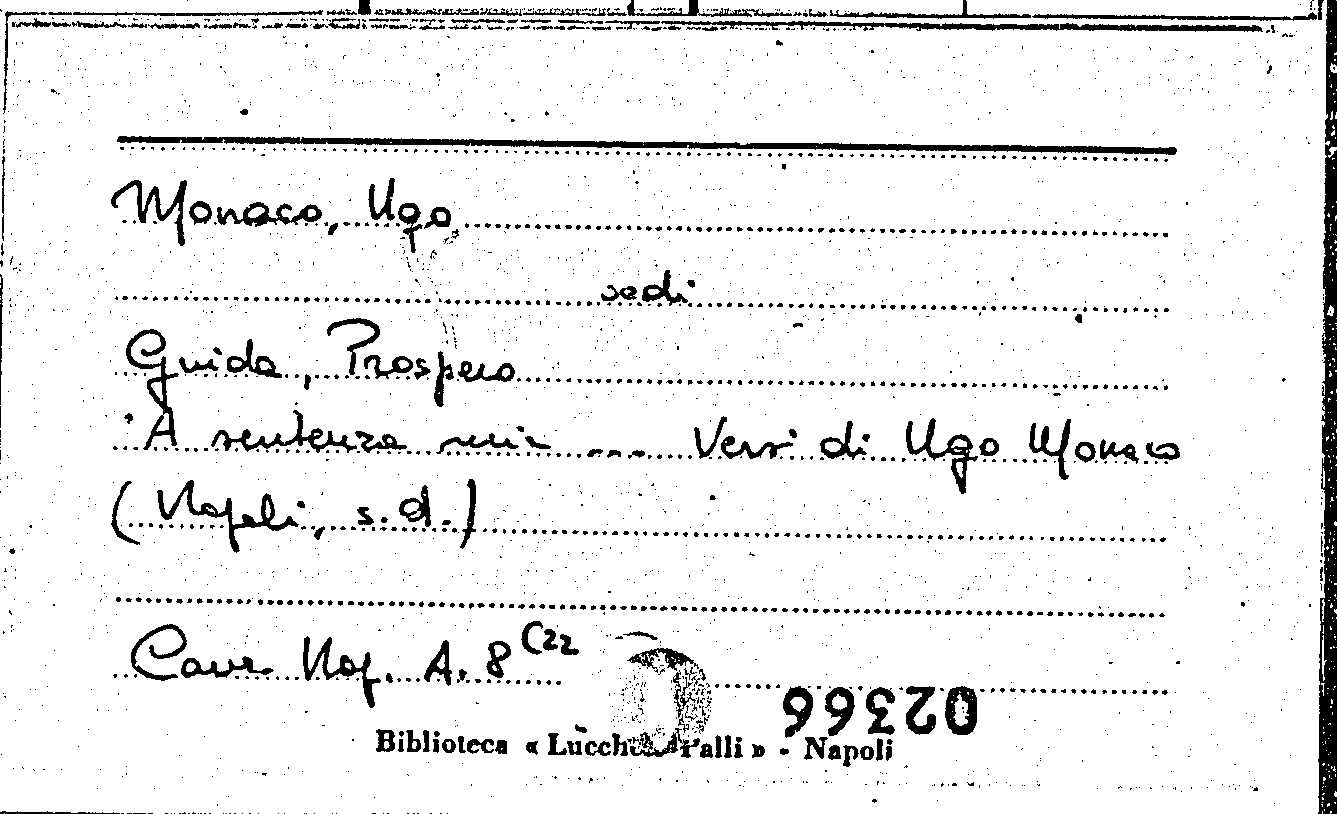 Monaco, Ugo
vedi
Guida, Prospero
'A sentenza mia .... Versi di Ugo Monaco
(Napoli, s.d.)
Canz. Nap. A. 8 (22
02366
Biblioteca « Lucchesi Palli » - Napoli